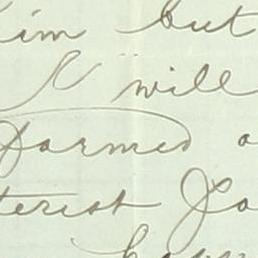 him but
I will
formed o
terest Jo